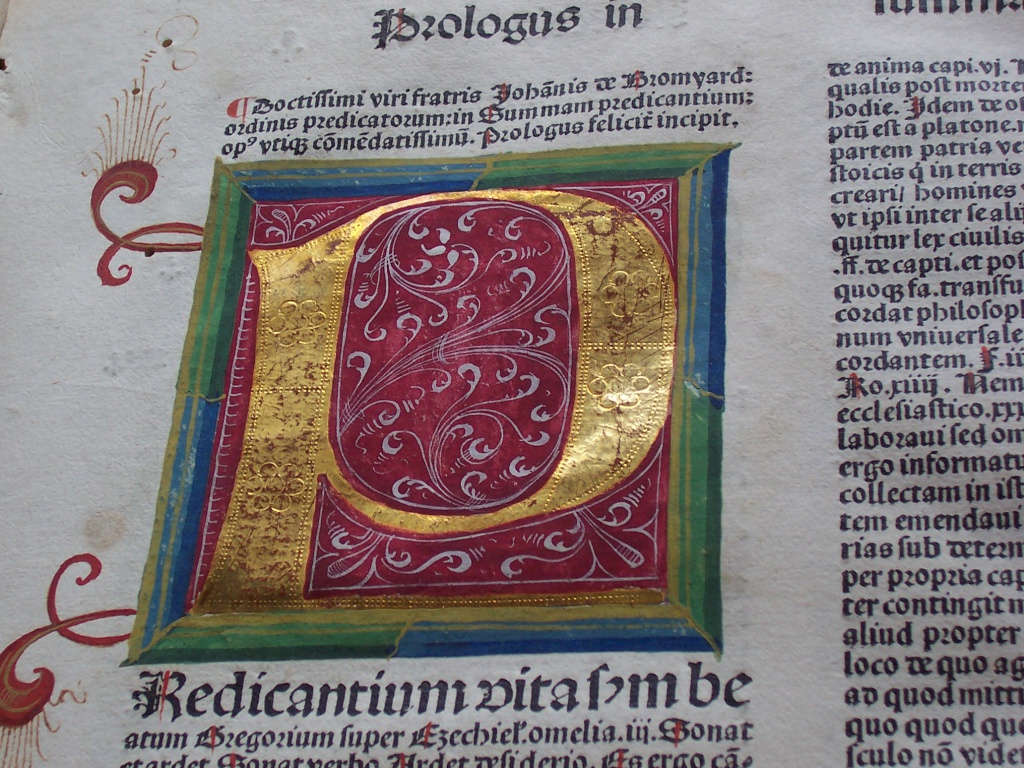 Prologus in
¶Doctissimi viri fratris Johānis de Bromyard:
ordinis predicatorum: in Summam predicantium:
opꝰ vtiqꝫ cōmēdatissimū. Prologus felicit̄ incipit.
P
Redicantium vita ſm be
atum Gregorium super Ezechiel. omelia. iii. Sonat
et ardet. Sonat verbo. Ardet desiderio. Es ergo cā-
de anima capi. vj.
qualis post mortem
hodie. Idem de
ptū est a platone.
partem patria
stoicis q̄ in terris
creari/ homines
vt ipsi inter se
quitur lex ciuilis
.ff. de capti. et
quoqꝫ fa.
cordat
num vniuersale
cordantem. F.
Ro. xiiij.
ecclesiastico.
laboraui sed
ergo
collectam in
tem emendaui
rias sub
per propria
ter contingit
aliud propter
loco de quo
ad quod
quo quod
sculo nō